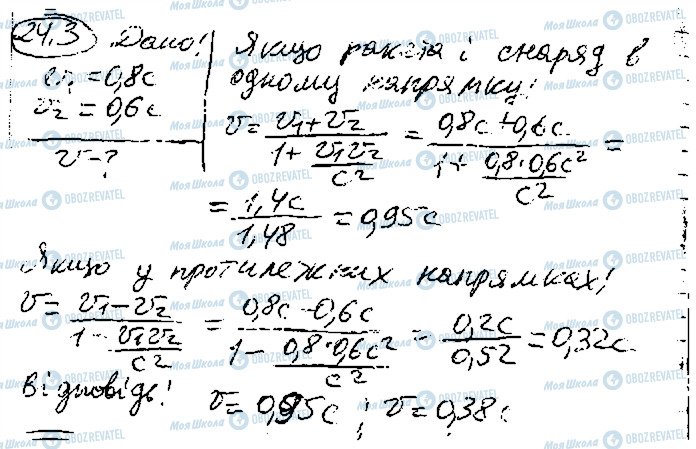 24.3 Дано!
v₁ = 0,8c
v₂ = 0,6c
v - ?
Якщо ракета і снаряд в
одному напрямку!
v = (v₁ + v₂) / (1 + v₁v₂/c²) = (0,8c + 0,6c) / (1 + 0,8·0,6c²/c²) =
= 1,4c / 1,48 = 0,95c
Якщо у протилежних напрямках!
v = (v₁ - v₂) / (1 - v₁v₂/c²) = (0,8c - 0,6c) / (1 - 0,8·0,6c²/c²) = 0,2c / 0,52 = 0,32c
Відповідь! v = 0,95c ; v = 0,38c
Моя Школа OBOZREVATEL